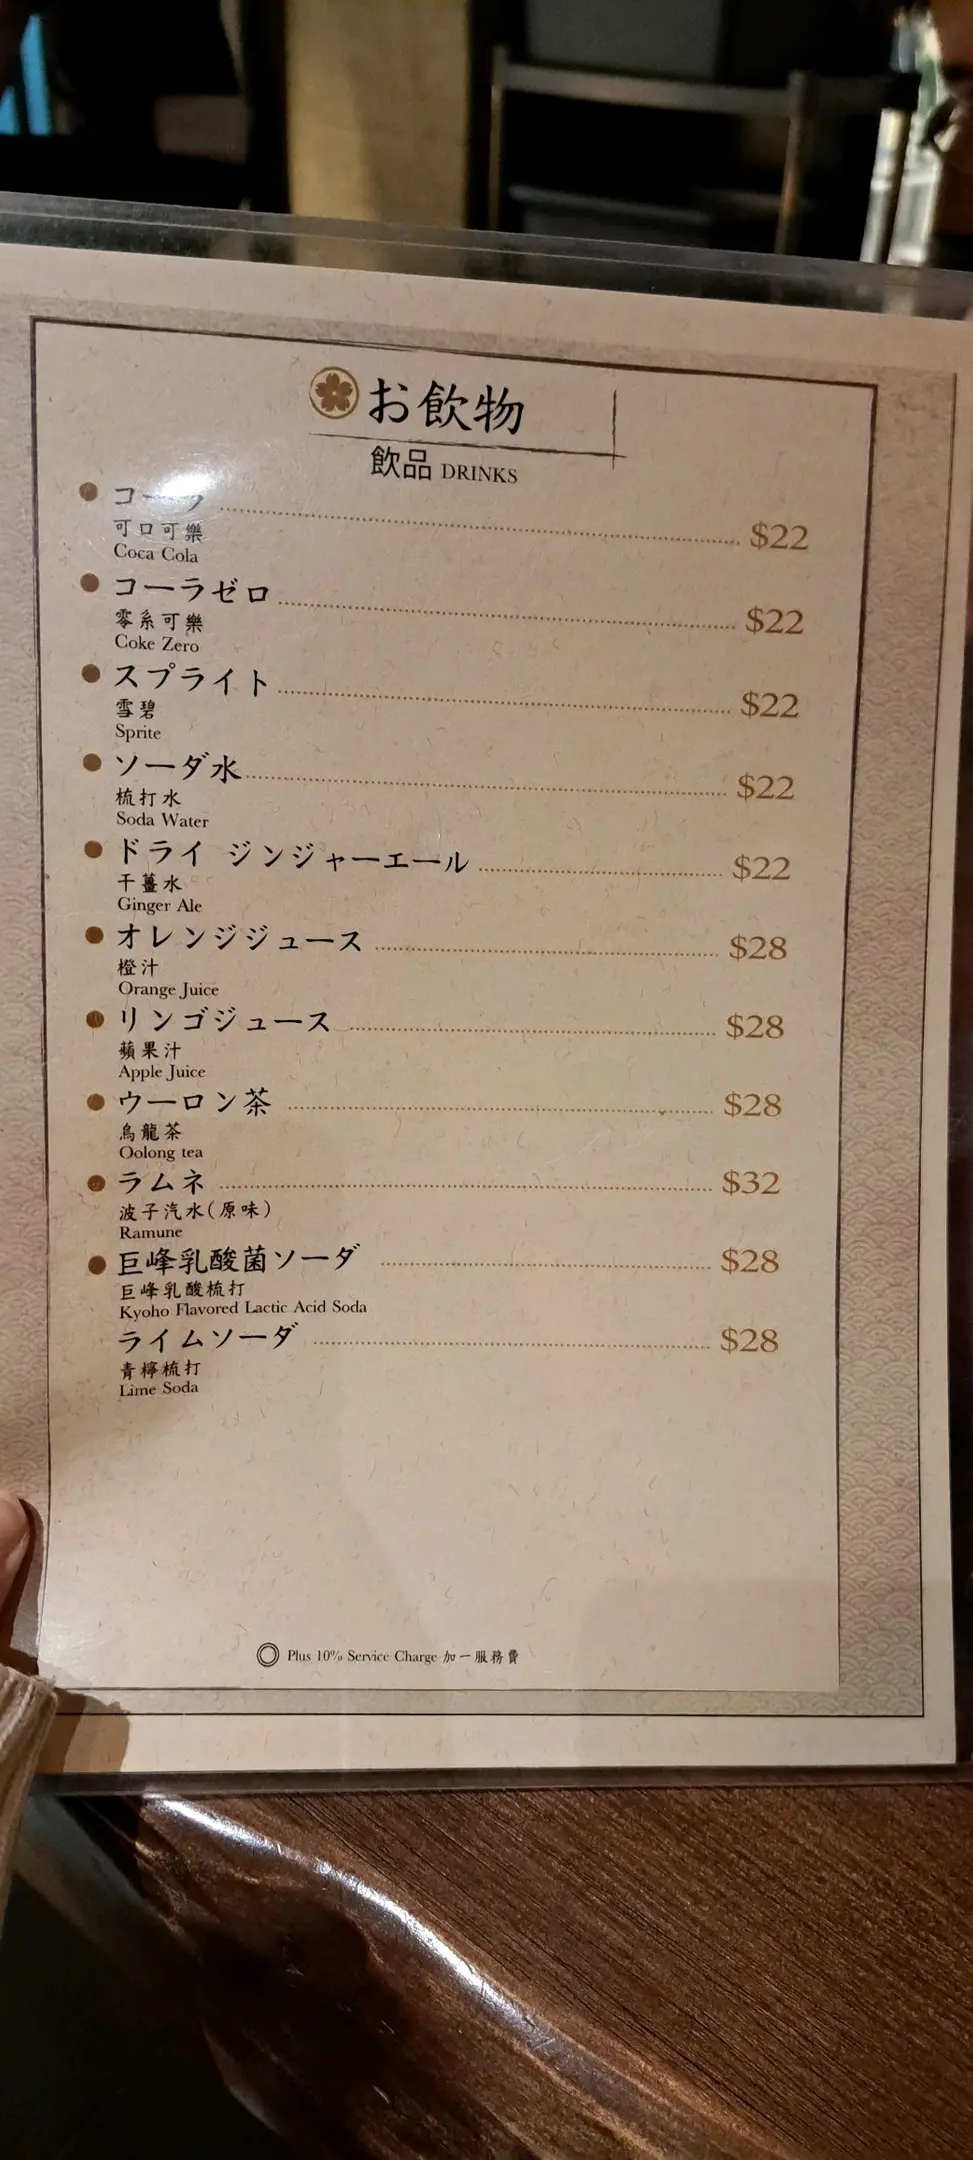 お飲物
飲品 DRINKS
コーラ $22
可口可樂
Coca Cola
コーラゼロ $22
零系可樂
Coke Zero
スプライト $22
雪碧
Sprite
ソーダ水 $22
梳打水
Soda Water
ドライ ジンジャーエール $22
干薑水
Ginger Ale
オレンジジュース $28
橙汁
Orange Juice
リンゴジュース $28
蘋果汁
Apple Juice
ウーロン茶 $28
烏龍茶
Oolong tea
ラムネ $32
波子汽水(原味)
Ramune
巨峰乳酸菌ソーダ $28
巨峰乳酸梳打
Kyoho Flavored Lactic Acid Soda
ライムソーダ $28
青檸梳打
Lime Soda
Plus 10% Service Charge 加一服務費